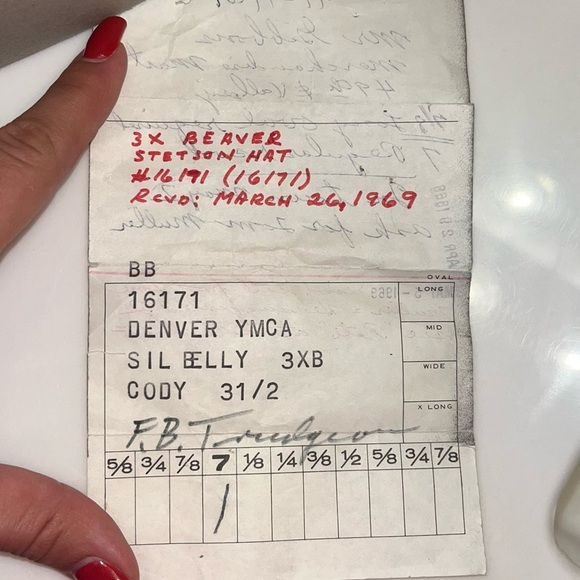 mr Gibbons
49th & Valley
3X BEAVER
STETSON HAT
#16191 (16171)
RCVD: MARCH 26, 1969
ask for Tom Muller
BB
OVAL
16171
LONG
DENVER YMCA
MID
SIL BELLY 3XB
WIDE
CODY 31/2
X LONG
F.B. Trudgeon
5/8 3/4 7/8 7 1/8 1/4 3/8 1/2 5/8 3/4 7/8
1